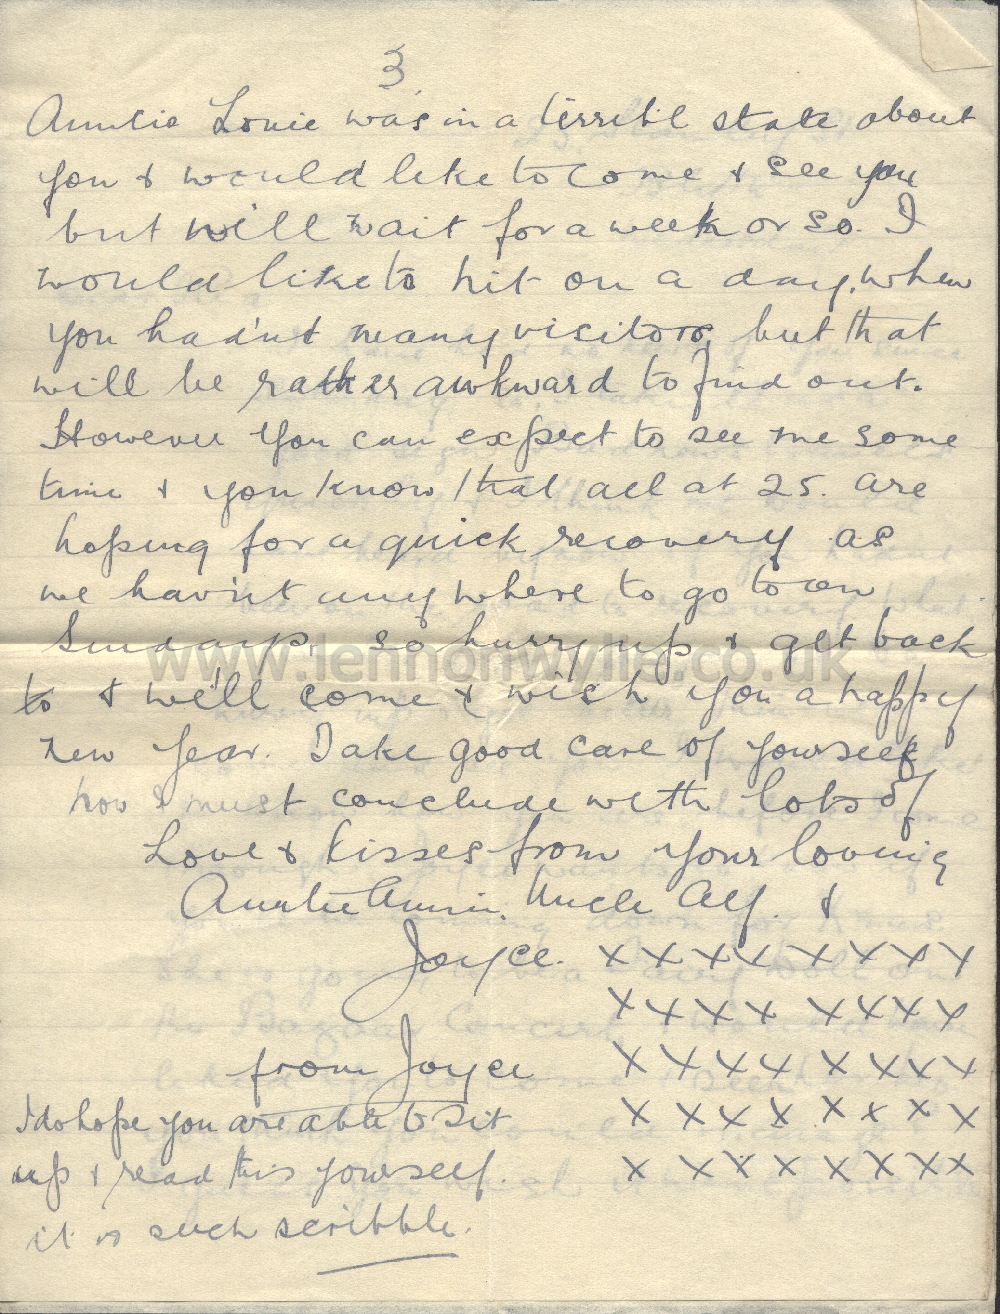 3
Auntie Louie was in a terribl state about
you & would like to come & see you
but will wait for a week or so. I
would like to hit on a day, when
you hadn't many visitors, but that
will be rather awkward to find out.
However you can expect to see me some
time & you know that all at 25. are
hoping for a quick recovery as
we hav'nt any where to go to on
Sundays, so hurry up & get back
to & we'll come & wish you a happy
new year. Take good care of yourself
now I must conclude with lots of
Love & kisses from your loving
Auntie Annie. Uncle Alf. &
Joyce. x x x x x x x x
x x x x x x x x
from Joyce x x x x x x x x
I do hope you are able to sit x x x x x x x x
up & read this yourself. x x x x x x x x
it is such scribble.
www.lennonwylie.co.uk